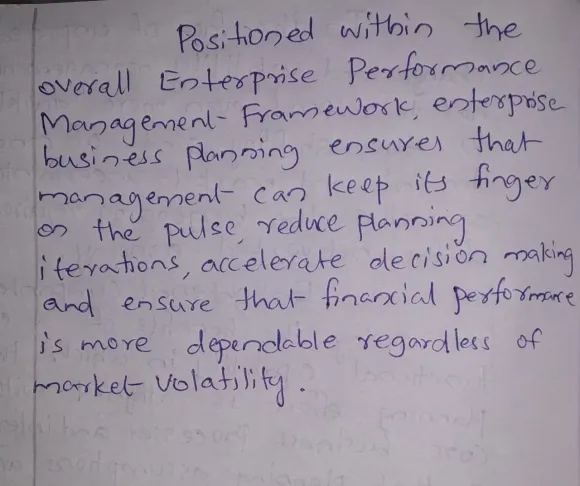 Positioned within the
overall Enterprise Performance
Management Framework, enterprise
business planning ensures that
management can keep its finger
on the pulse, reduce planning
iterations, accelerate decision making
and ensure that financial performance
is more dependable regardless of
market volatility.